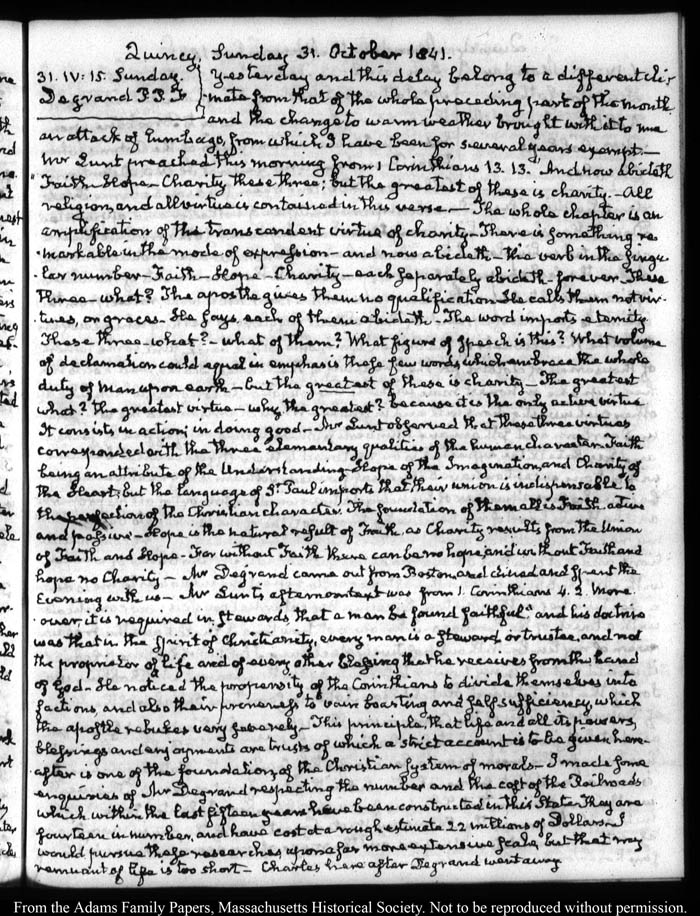 Quincy, Sunday 31. October 1841.
31. IV: 15. Sunday.
Degrand P. P. F
Yesterday and this delay belong to a different cli-
mate from that of the whole preceding part of the month
and the change to warm weather brought with it to me
an attack of Lumbago, from which I have been for several years exempt.—
Mr Lunt preached this morning from 1 Corinthians 13. 13. And now abideth
Faith—Hope—Charity these three; but the greatest of these is charity.—All
religion, and all virtue is contained in this verse.—The whole chapter is an
amplification of the transcendent virtue of charity—There is something re-
markable in the mode of expression—and now abideth—the verb in the singu-
lar number—Faith—Hope—Charity—each separately abideth—forever. These
three—what? The apostle gives them no qualification. He calls them not vir-
tues, or graces—He says, each of them abideth—The word imports eternity
These three—what?—what of them? What figure of speech is this? What volume
of declamation could equal in emphasis these few words which embrace the whole
duty of man upon earth—but the greatest of these is charity—The greatest
what? the greatest virtue—why the greatest? because it is the only active virtue
It consists in action; in doing good—Mr Lunt observed that these three virtues
corresponded with the three elementary qualities of the human character. Faith
being an attribute of the Understanding—Hope of the Imagination, and Charity of
the Heart; but the language of St. Paul imports that their union is indispensable to
the perfection of the Christian character. The foundation of them all is Faith, active
and passive—Hope is the natural result of Faith, as Charity results from the Union
of Faith and Hope—For without Faith there can be no hope, and without Faith and
hope no Charity—Mr Degrand came out from Boston, and dined and spent the
Evening with us—Mr Lunt's afternoon text was from 1. Corinthians 4. 2. More-
over, it is required in stewards that a man be found faithful" and his doctrine
was that in the spirit of Christianity, every man is a steward or trustee, and not
the proprietor of life and of every other blessing that he receives from the hand
of God—He noticed the propensity of the Corinthians to divide themselves into
factions, and also their proneness to vain boasting and self sufficiency, which
the apostle rebukes very severely—This principle, that life and all its powers,
blessings and enjoyments are trusts of which a strict account is to be given here-
after is one of the foundations of the Christian system of morals—I made some
enquiries of Mr Degrand respecting the number and the cost of the Railroads
which within the last fifteen years have been constructed in this State. They are
fourteen in number, and have cost at a rough estimate 22 millions of Dollars—I
would pursue these researches upon a far more extensive scale, but that my
remnant of life is too short—Charles here after Degrand went away
From the Adams Family Papers, Massachusetts Historical Society. Not to be reproduced without permission.